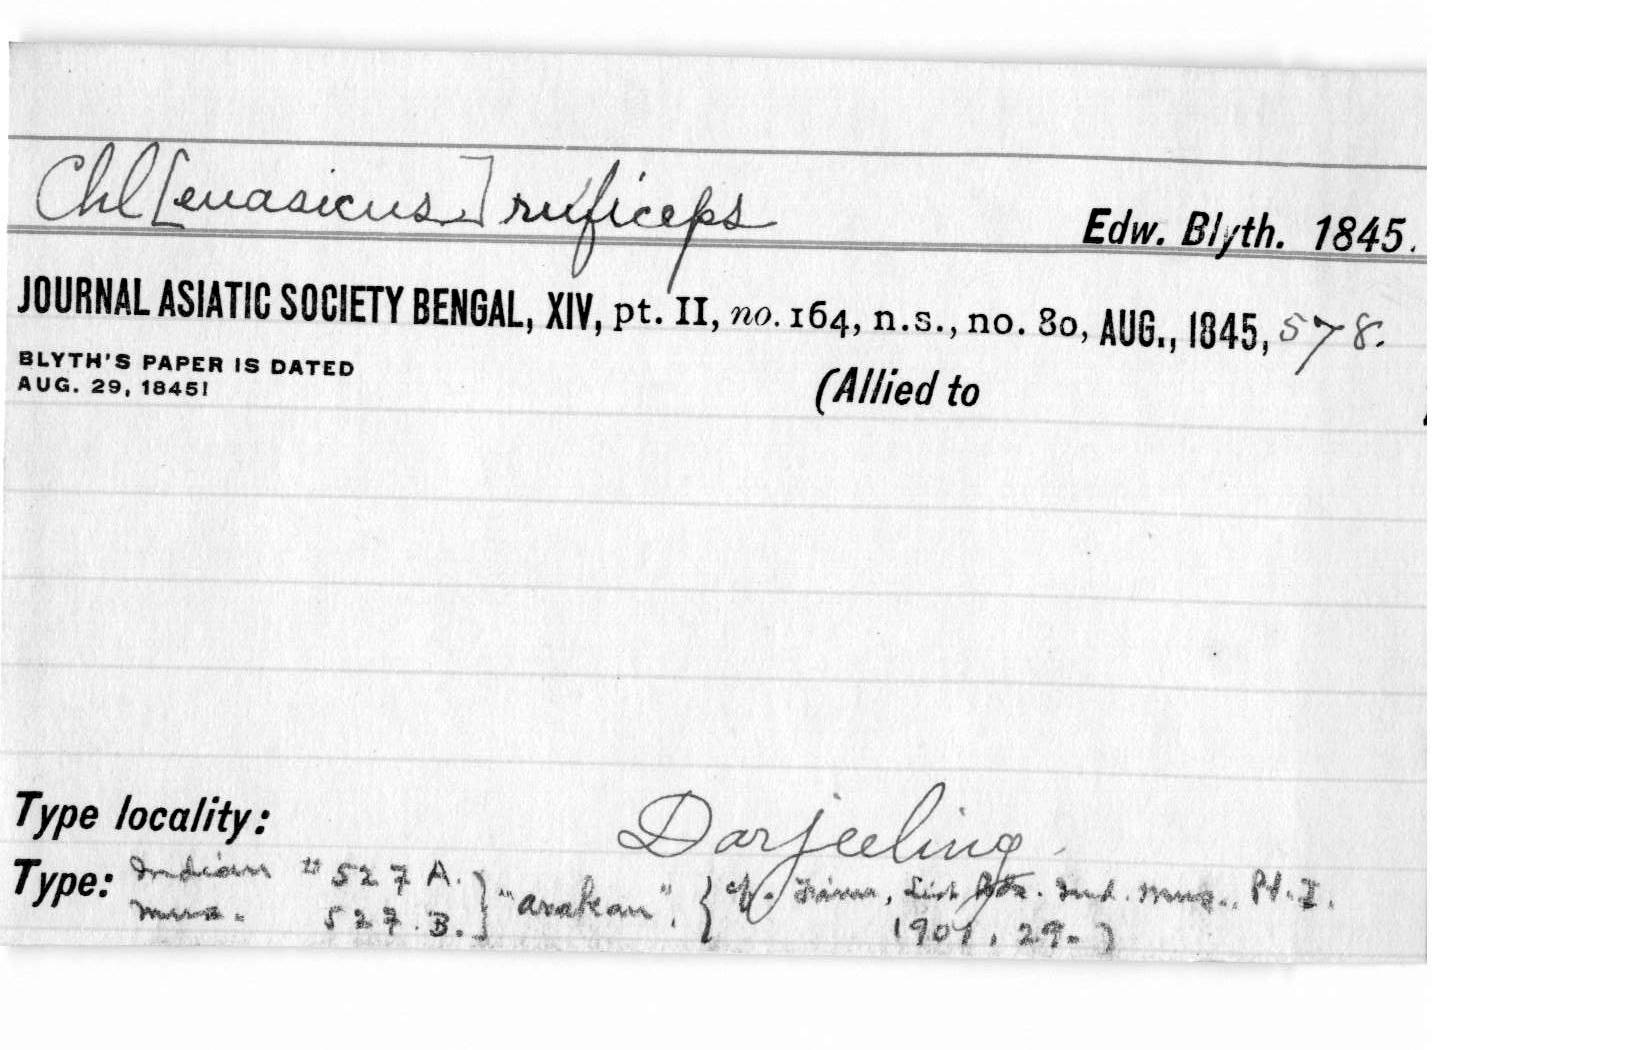 Chl[euasicus] ruficeps
Edw. Blyth. 1845.
JOURNAL ASIATIC SOCIETY BENGAL, XIV, pt. II, no. 164, n.s., no. 80, AUG., 1845, 578.
BLYTH'S PAPER IS DATED
AUG. 29, 1845!
(Allied to
Type locality: Darjeeling
Type: Indian # 527 A. } "Arakan". { cf. List Bds. Ind. Mus., Pt. I.
Mus. 527. B. 1901, 29. )